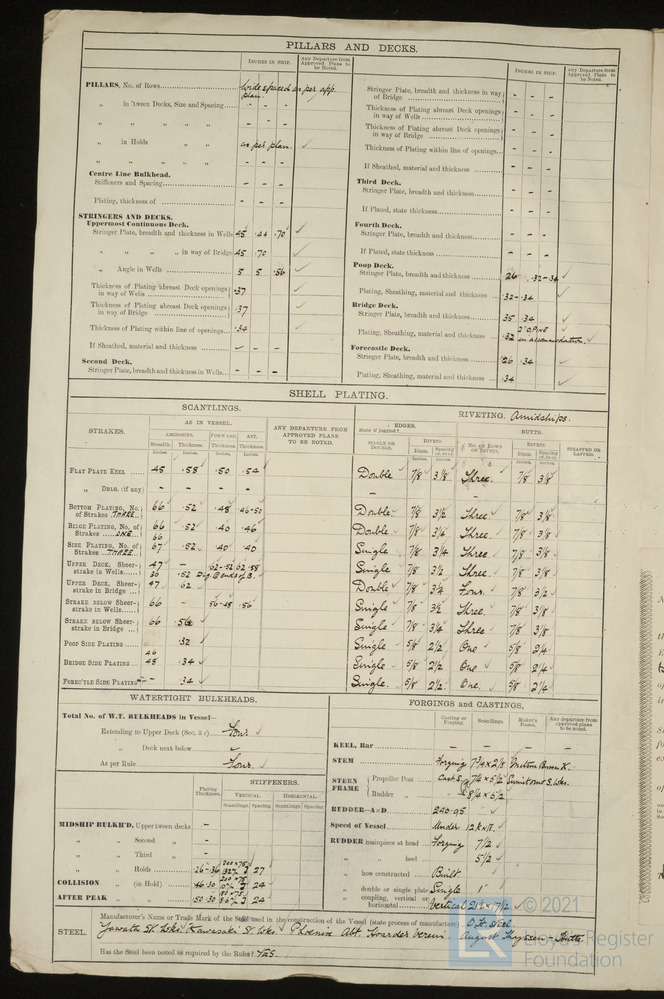 PILLARS AND DECKS.
INCHES IN SHIP.
Any Departure from Approved Plans to be Noted.
PILLARS, No. of Rows wide spaced as per app. plan.
„ in 'tween Decks, Size and Spacing - - -
„ „ „ „ - - -
„ in Holds „ „ as per plan. ✓
„ „ „ „ - - -
Centre Line Bulkhead.
Stiffeners and Spacing - - -
Plating, thickness of - - -
STRINGERS AND DECKS.
Uppermost Continuous Deck.
Stringer Plate, breadth and thickness in Wells 45 .44 .70 ✓
„ „ „ „ in way of Bridge 45 .70 ✓
„ Angle in Wells 5 5 .56 ✓
Thickness of Plating abreast Deck openings in way of Wells .37 ✓
Thickness of Plating abreast Deck openings in way of Bridge .37 ✓
Thickness of Plating within line of openings .34 ✓
If Sheathed, material and thickness - - -
Second Deck.
Stringer Plate, breadth and thickness in Wells - - -
INCHES IN SHIP.
Any Departure from Approved Plans to be Noted.
Stringer Plate, breadth and thickness in way of Bridge - - -
Thickness of Plating abreast Deck openings in way of Wells - - -
Thickness of Plating abreast Deck openings in way of Bridge - - -
Thickness of Plating within line of openings - - -
If Sheathed, material and thickness - - -
Third Deck.
Stringer Plate, breadth and thickness - - -
If Plated, state thickness - - -
Fourth Deck.
Stringer Plate, breadth and thickness - - -
If Plated, state thickness - - -
Poop Deck.
Stringer Plate, breadth and thickness 26 .32-34 ✓
Plating, Sheathing, material and thickness .32-.34 ✓
Bridge Deck.
Stringer Plate, breadth and thickness 35 .34 ✓
Plating, Sheathing, material and thickness .32 in accommodation. ✓
Forecastle Deck.
Stringer Plate, breadth and thickness 26 .34 ✓
Plating, Sheathing, material and thickness .34 ✓
SHELL PLATING.
SCANTLINGS.
RIVETING. Amidships.
STRAKES.
AS IN VESSEL.
AMIDSHIPS. FORWARD. AFT.
Breadth. Thickness. Thickness. Thickness.
Inches. Inches. Inches. Inches.
ANY DEPARTURE FROM APPROVED PLANS TO BE NOTED.
EDGES.
State if joggled?
SINGLE OR DOUBLE.
RIVETS.
Diam. Spacing
BUTTS.
No. of Rows of Rivets.
RIVETS.
Diam. Spacing
STRAPPED OR LAPPED.
FLAT PLATE KEEL 48 .58 .50 .54 Double 7/8 3 1/8 Three. 7/8 3 1/8
„ DBLG. (if any) - - - - - -
BOTTOM PLATING, No. of Strakes THREE 66 .52 .48 .46-50 Double 7/8 3 1/2 Three 7/8 3 1/8
BILGE PLATING, No. of Strakes ONE 66 .52 .40 .46 Double 7/8 3 1/4 Three 7/8 3 1/8
SIDE PLATING, No. of Strakes THREE 66 67 .52 .40 .40 Single 7/8 3 1/4 Three 7/8 3 1/8
UPPER DECK, Sheer-strake in Wells 47 - .62-52 62-58 Single 7/8 3 1/2 Three 7/8 3 1/8
UPPER DECK, Sheer-strake in Bridge 47 .62 Double 7/8 3 1/2 Four. 7/8 3 1/2
STRAKE BELOW Sheer-strake in Wells 66 - .56-48 .56 Single 7/8 3 1/2 Three. 7/8 3 1/8
STRAKE BELOW Sheer-strake in Bridge 66 .56 Single 7/8 3 1/4 Three 7/8 3 1/8
POOP SIDE PLATING .32 Single 5/8 2 1/2 One 5/8 2 1/4
BRIDGE SIDE PLATING 46 48 .34 Single 5/8 2 1/2 One 5/8 2 1/4
FORECTLE SIDE PLATING - - .34 Single 5/8 2 1/2 One. 5/8 2 1/4
WATERTIGHT BULKHEADS.
Total No. of W.T. BULKHEADS in Vessel—
Extending to Upper Deck (Sec. 3 c) Four ✓
„ Deck next below ✓
As per Rule Four. ✓
STIFFENERS.
Plating Thickness.
VERTICAL. HORIZONTAL.
Scantlings Spacing Scantlings Spacing
MIDSHIP BULKH'D, Upper tween decks -
„ „ Second „ -
„ „ Third „ -
„ „ Holds .26-.36 27
COLLISION „ (in Hold) .46-30 24
AFTER PEAK „ „ .50-30 24
FORGINGS and CASTINGS.
Casting or Forging. Scantlings. Maker's Name. Any departure from approved plans to be noted.
KEEL, Bar - - -
STEM Forging 7 3/4 x 2 1/8
STERN FRAME
Propeller Post Cast S. 7 1/4 x 5 1/2 Sumitomo S. Wks.
Rudder „ 8 1/4 x 5 1/2
RUDDER—A×D 240.95 ✓
Speed of Vessel Under 12 Kn. ✓
RUDDER mainpiece at head Forging 7 1/2 ✓
„ „ heel 5 1/2 ✓
„ how constructed Built
„ double or single plate Single 1"
„ coupling, vertical or horizontal Vertical ✓
STEEL
Manufacturer's Name or Trade Mark of the Steel used in the construction of the Vessel (state process of manufacture) O.H. Steel.
Yawata St. Wks. Kawasaki St. Wks. Phoenix Abt. Hoerder Verein. August Thyssen - Hütte.
Has the Steel been tested as required by the Rules? YES.
© 2021
Lloyd's Register
Foundation